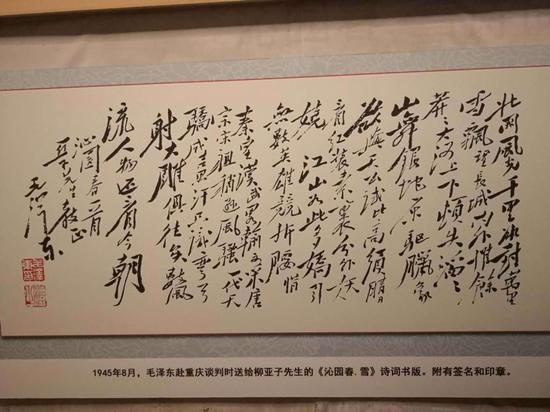 北國風光千里冰封萬里
雪飄望長城内外惟餘
莽々大河上下頓失滔々
山舞銀蛇原馳臘象
欲与天公試比高須晴
日看红装素裹分外妖
嬈 江山如此多嬌引
無數英雄競折腰惜
秦皇漢武略輸文采唐
宗宋祖稍遜風騷一代天
驕成吉思汗只識彎弓
射大雕俱往矣數風
流人物还看今朝
沁園春一首
亞子先生教正
毛澤东
1945年8月，毛泽东赴重庆谈判时送给柳亚子先生的《沁园春.雪》诗词书版。附有签名和印章。